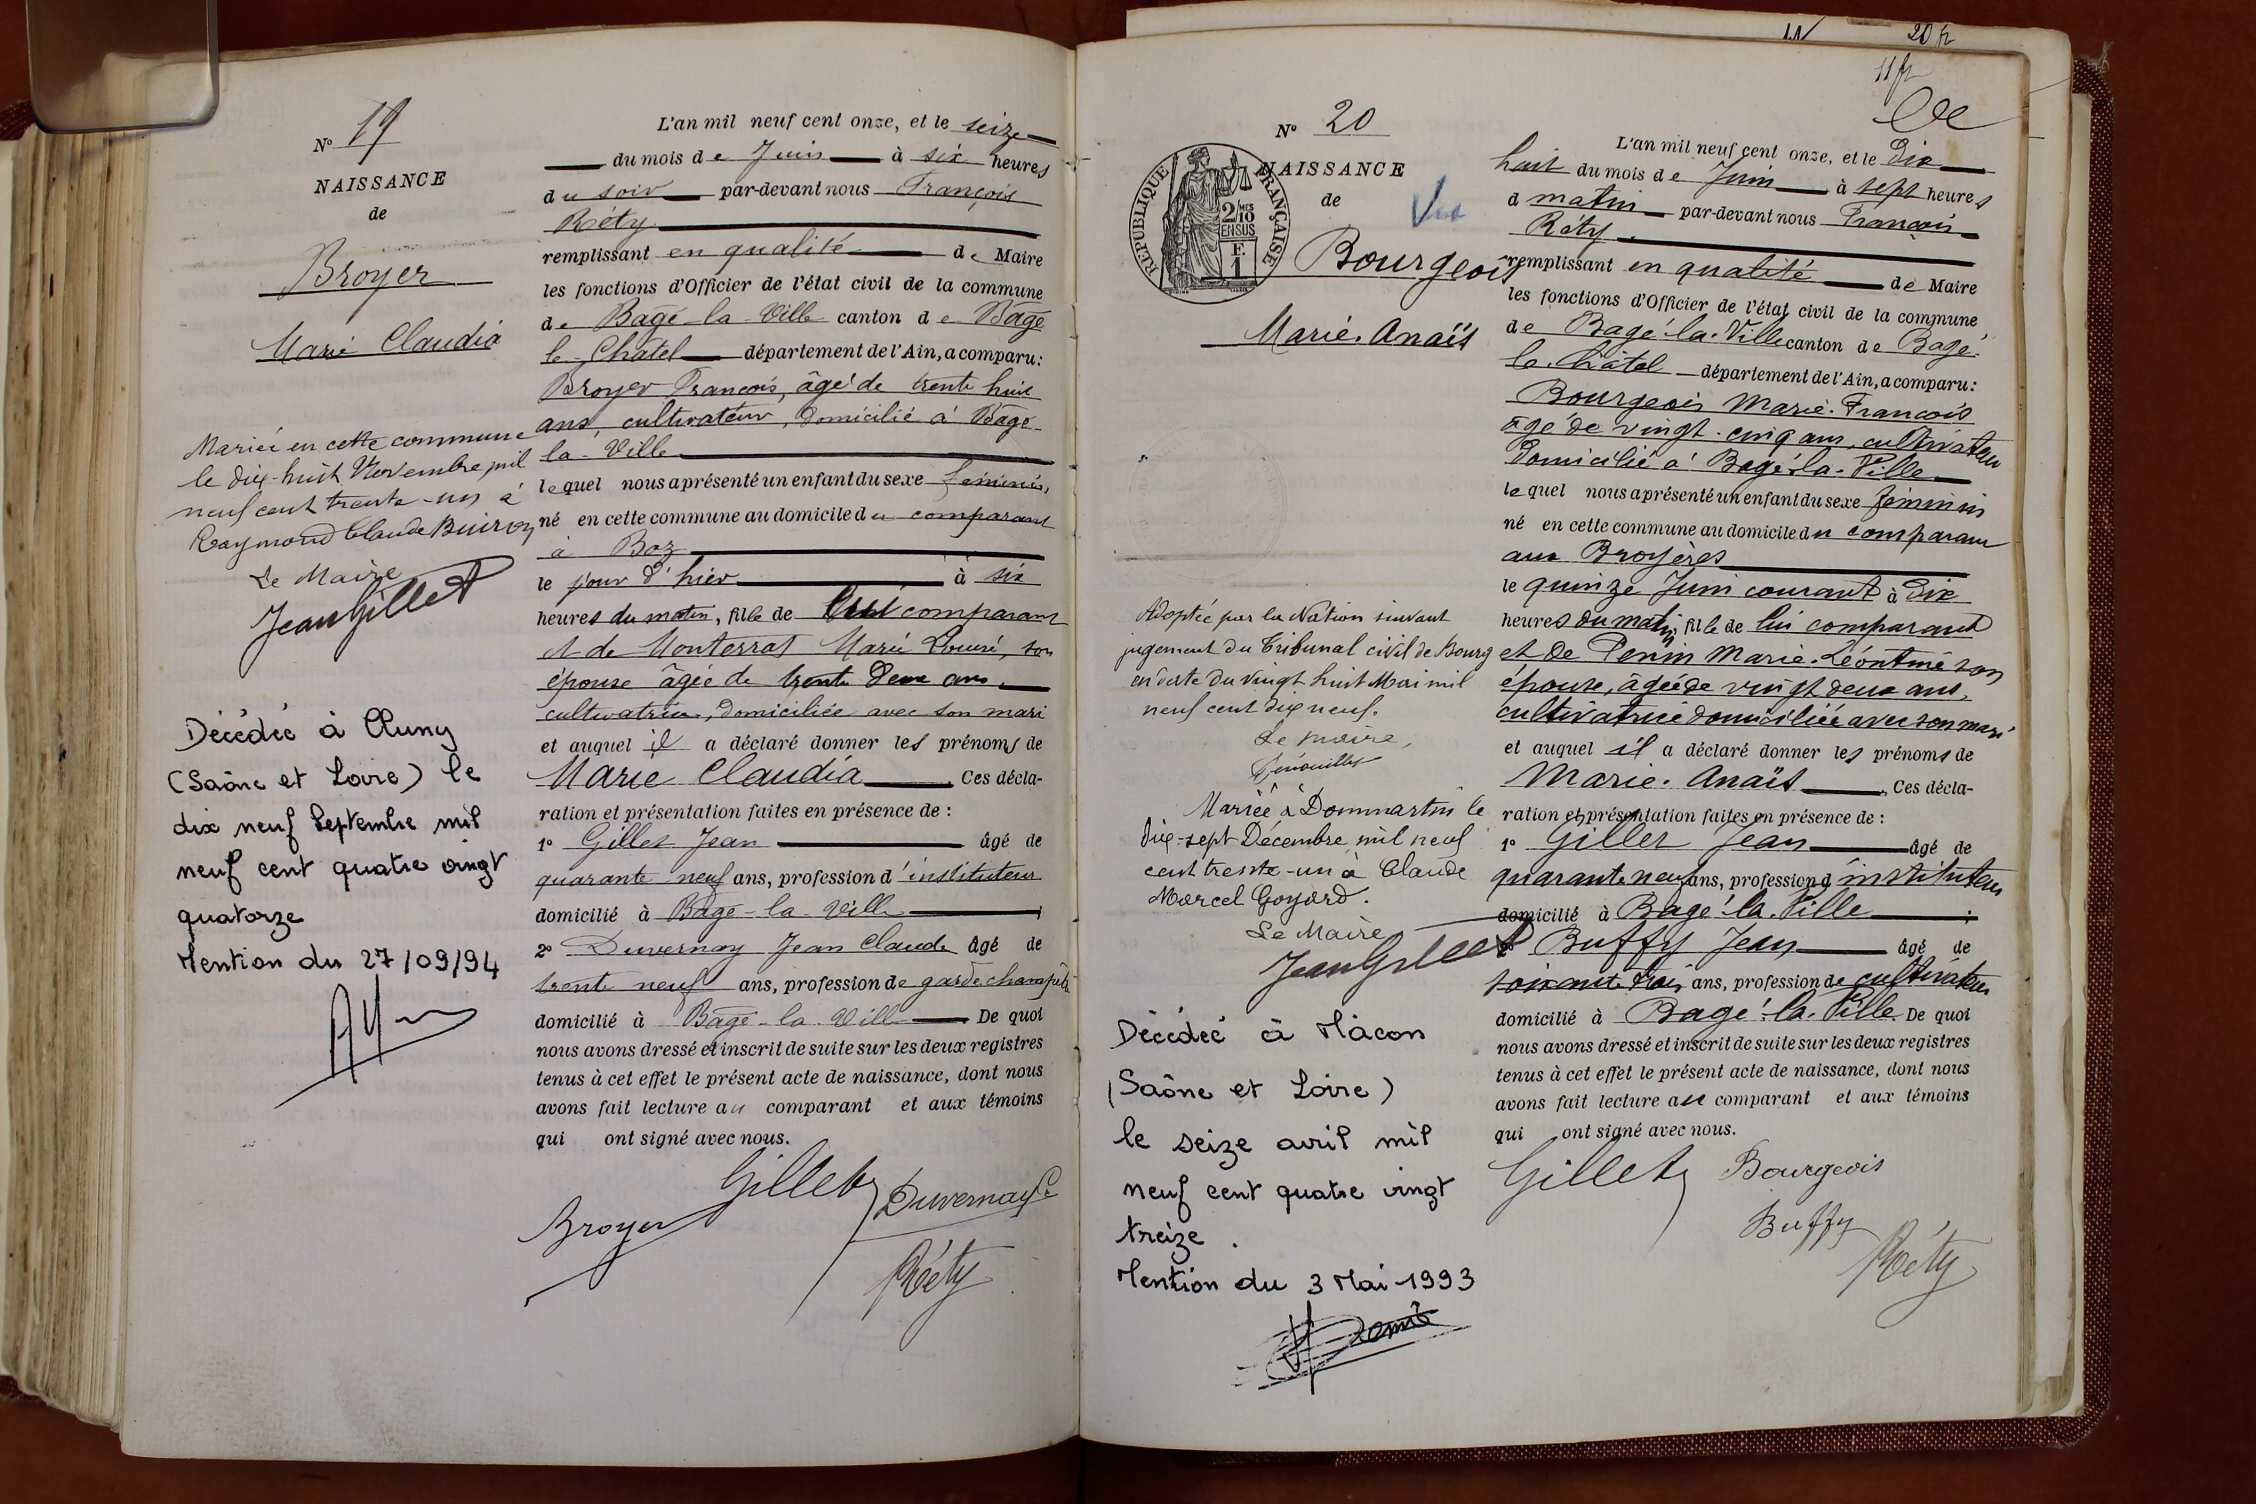 N° 19
NAISSANCE
de
Broyer
Marie Claudia
Mariée en cette commune
le dix-huit Novembre mil
neuf cent trente-un à
Raymond Claude Buiron
Le Maire
Jean Gillet
Décédée à Cluny
(Saône et Loire) le
dix neuf Septembre mil
neuf cent quatre vingt
quatorze
Mention du 27/09/94
L'an mil neuf cent onze, et le seize
du mois de Juin à six heures
du soir par-devant nous François
Réty
remplissant en qualité de Maire
les fonctions d'Officier de l'état civil de la commune
de Bagé-la-Ville canton de Bagé
le-Châtel département de l'Ain, a comparu:
Broyer François, âgé de trente huit
ans, cultivateur, domicilié à Bagé-
la-Ville
lequel nous a présenté un enfant du sexe féminin,
né en cette commune au domicile du comparant
à Boz
le jour d'hier à six
heures du matin, fille de lui comparant
et de Monterrat Marie Louise, son
épouse âgée de trente deux ans,
cultivatrice, domiciliée avec son mari
et auquel il a déclaré donner les prénoms de
Marie Claudia. Ces décla-
ration et présentation faites en présence de :
1° Gillet Jean âgé de
quarante neuf ans, profession d'instituteur
domicilié à Bagé-la-Ville ;
2° Duvernay Jean Claude âgé de
trente neuf ans, profession de garde champêtre
domicilié à Bagé-la-Ville De quoi
nous avons dressé et inscrit de suite sur les deux registres
tenus à cet effet le présent acte de naissance, dont nous
avons fait lecture au comparant et aux témoins
qui ont signé avec nous.
Gillet
Duvernay
Broyer
Réty
20 fr
11 fr
N° 20
NAISSANCE
de
REPUBLIQUE FRANÇAISE
2/10 MES
EN SUS
F.
1
Vu
Bourgeois
Marie-Anaïs
Adoptée par la Nation suivant
jugement du Tribunal civil de Bourg
en date du vingt huit Mai mil
neuf cent dix neuf.
Le maire,
Mariée à Dommartin le
dix-sept Décembre mil neuf
cent trente-un à Claude
Marcel Goyard.
Le Maire
Jean Gillet
Décédée à Mâcon
(Saône et Loire)
le seize avril mil
neuf cent quatre vingt
treize.
Mention du 3 Mai 1993
L'an mil neuf cent onze, et le dix
huit du mois de Juin à sept heures
d matin par-devant nous François
Réty
remplissant en qualité de Maire
les fonctions d'Officier de l'état civil de la commune
de Bagé-la-Ville canton de Bagé-
le-Châtel département de l'Ain, a comparu:
Bourgeois Marie-François
âgé de vingt-cinq ans, cultivateur
domicilié à Bagé-la-Ville
lequel nous a présenté un enfant du sexe féminin
né en cette commune au domicile du comparant
aux Broyères
le quinze Juin courant à dix
heures du matin, fille de lui comparant
et de Penin Marie-Léontine son
épouse, âgée de vingt deux ans,
cultivatrice domiciliée avec son mari
et auquel il a déclaré donner les prénoms de
Marie-Anaïs. Ces décla-
ration et présentation faites en présence de :
1° Gillet Jean âgé de
quarante neuf ans, profession d'instituteur
domicilié à Bagé-la-Ville ;
2° Buffy Jean âgé de
soixante trois ans, profession de cultivateur
domicilié à Bagé-la-Ville. De quoi
nous avons dressé et inscrit de suite sur les deux registres
tenus à cet effet le présent acte de naissance, dont nous
avons fait lecture au comparant et aux témoins
qui ont signé avec nous.
Gillet
Bourgeois
Buffy
Réty